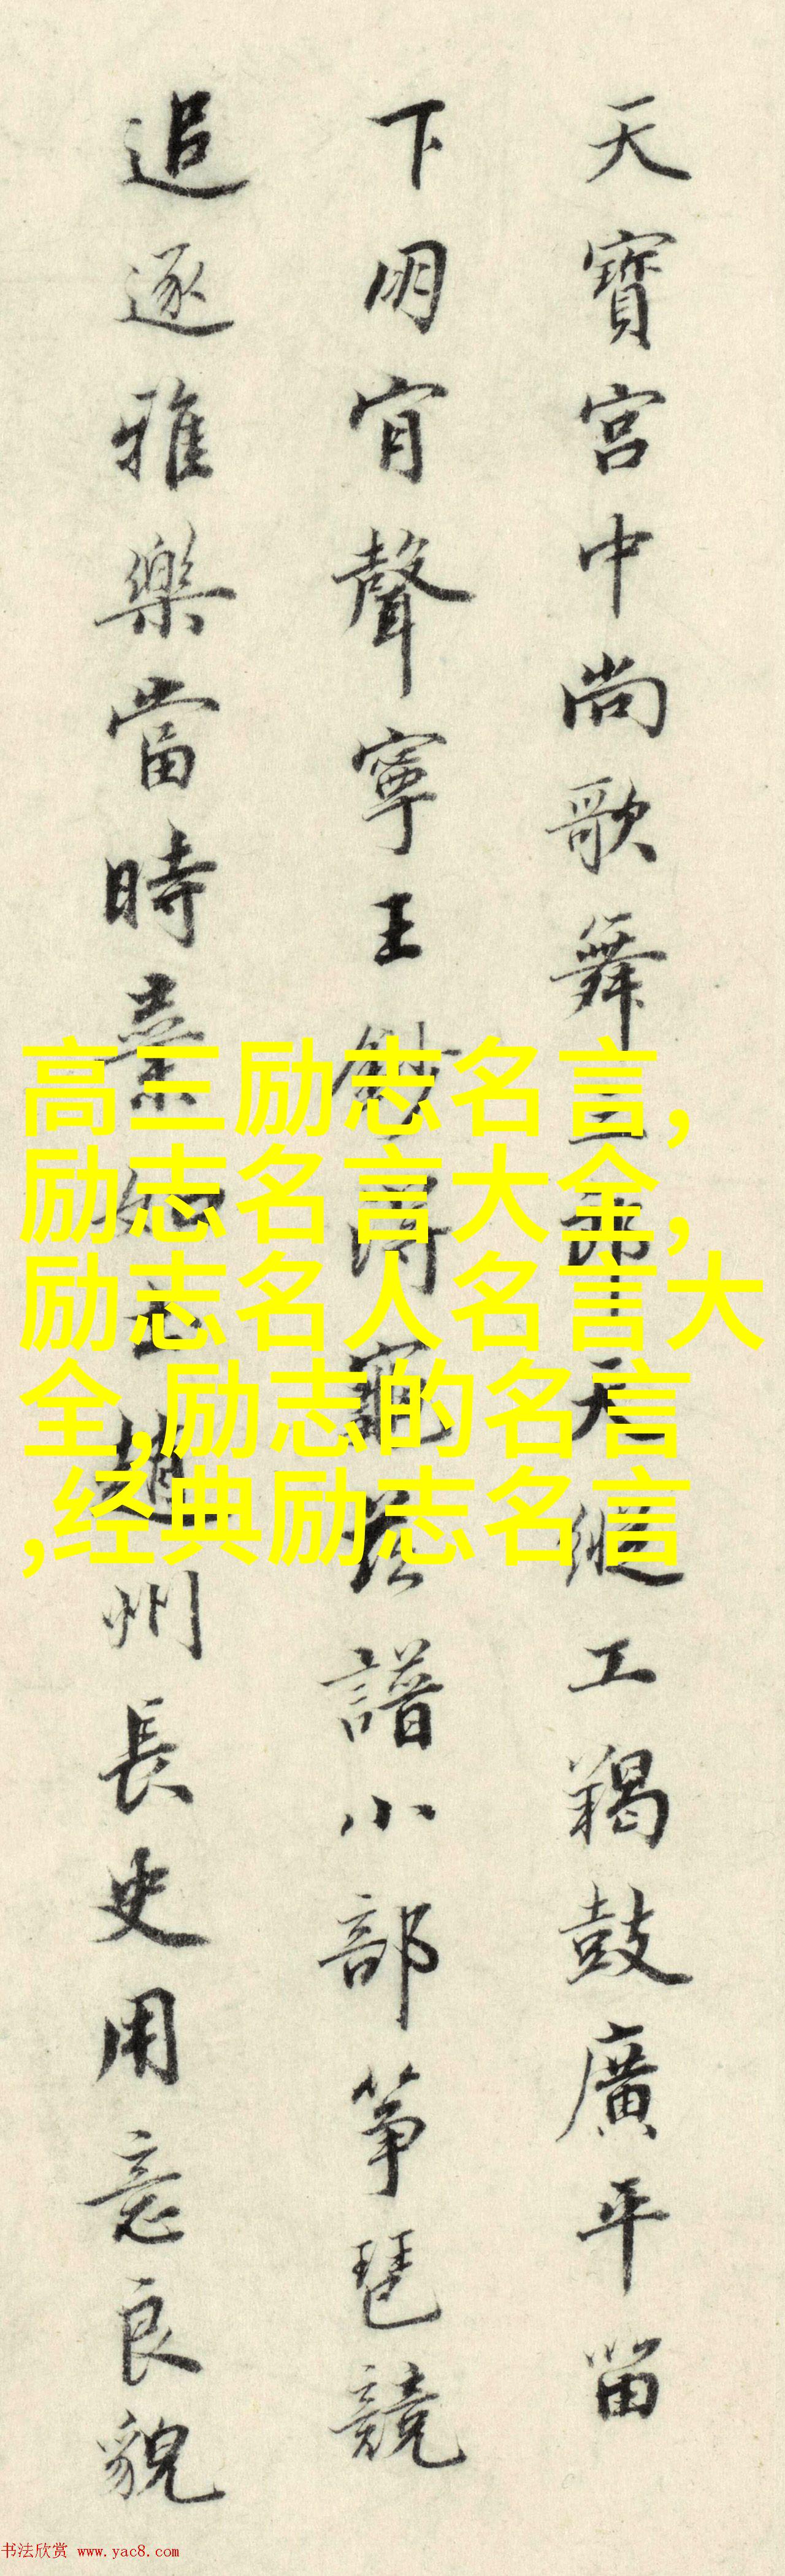 天寶宮中尚歌舞三郎天縱工羯鼓廣平留
下朋肎聲寧王鈔得龜茲譜小部箏琶競
追逐雅樂當時棄如土趙州長史用意良貌
高三励志名言,
励志名言大全,
励志名人名言大
全,励志的名言
,经典励志名言
书法欣赏 www.yac8.com